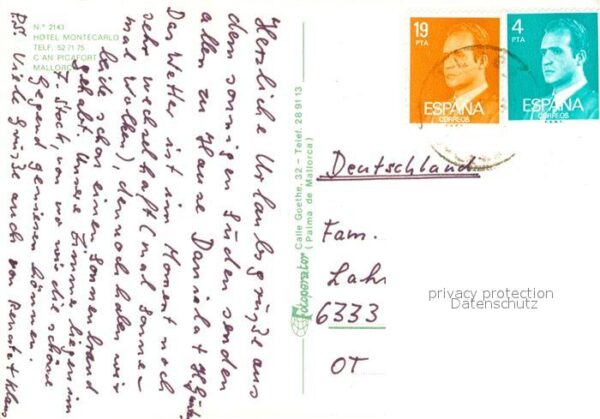 N.° 2143
HOTEL MONTECARLO
TELF. 52 71 75
C'AN PICAFORT
MALLORCA
Herzliche Urlaubsgrüße aus
dem sonnigen Süden senden
allen zu Hause Daniela +
Das Wetter ist im Moment noch
sehr wechselhaft (mal Sonne -
mal Wolken) dennoch haben wir
beide schon einen Sonnenbrand
gehabt. Unsere Zimmer liegen im
7. Stock, von wo wir die schöne
Gegend geniesen können.
P.S. Viele Grüße auch von Renate + Klaus
Fotoperator Calle Goethe, 32 - Telef. 28 91 13
(Palma de Mallorca)
19
PTA
ESPAÑA
CORREOS
4
PTA
ESPAÑA
CORREOS
Deutschland
Fam.
Lahn
6333
OT
privacy protection
Datenschutz